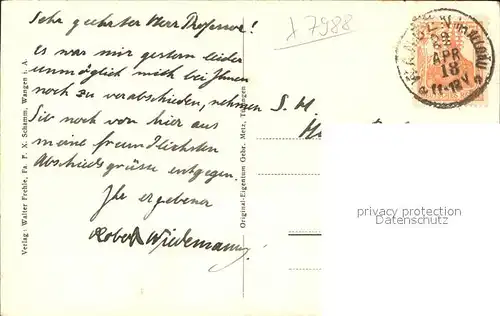 Sehr geehrter Herr Professor!
Es war mir gestern leider
unmöglich mich bei Ihnen
noch zu verabschieden, nehmen
Sie noch von hier aus
meine freundlichsten
Abschiedsgrüsse entgegen.
Ihr ergebener
Robert Wiedemann
Verlag: Walter Frehle, Fa. F. X. Schamm, Wangen i. A.
Original-Eigentum Gebr. Metz, Tübingen
X 7988
S. H.
WANGEN
APR
18
11-12V
privacy protection
watermark